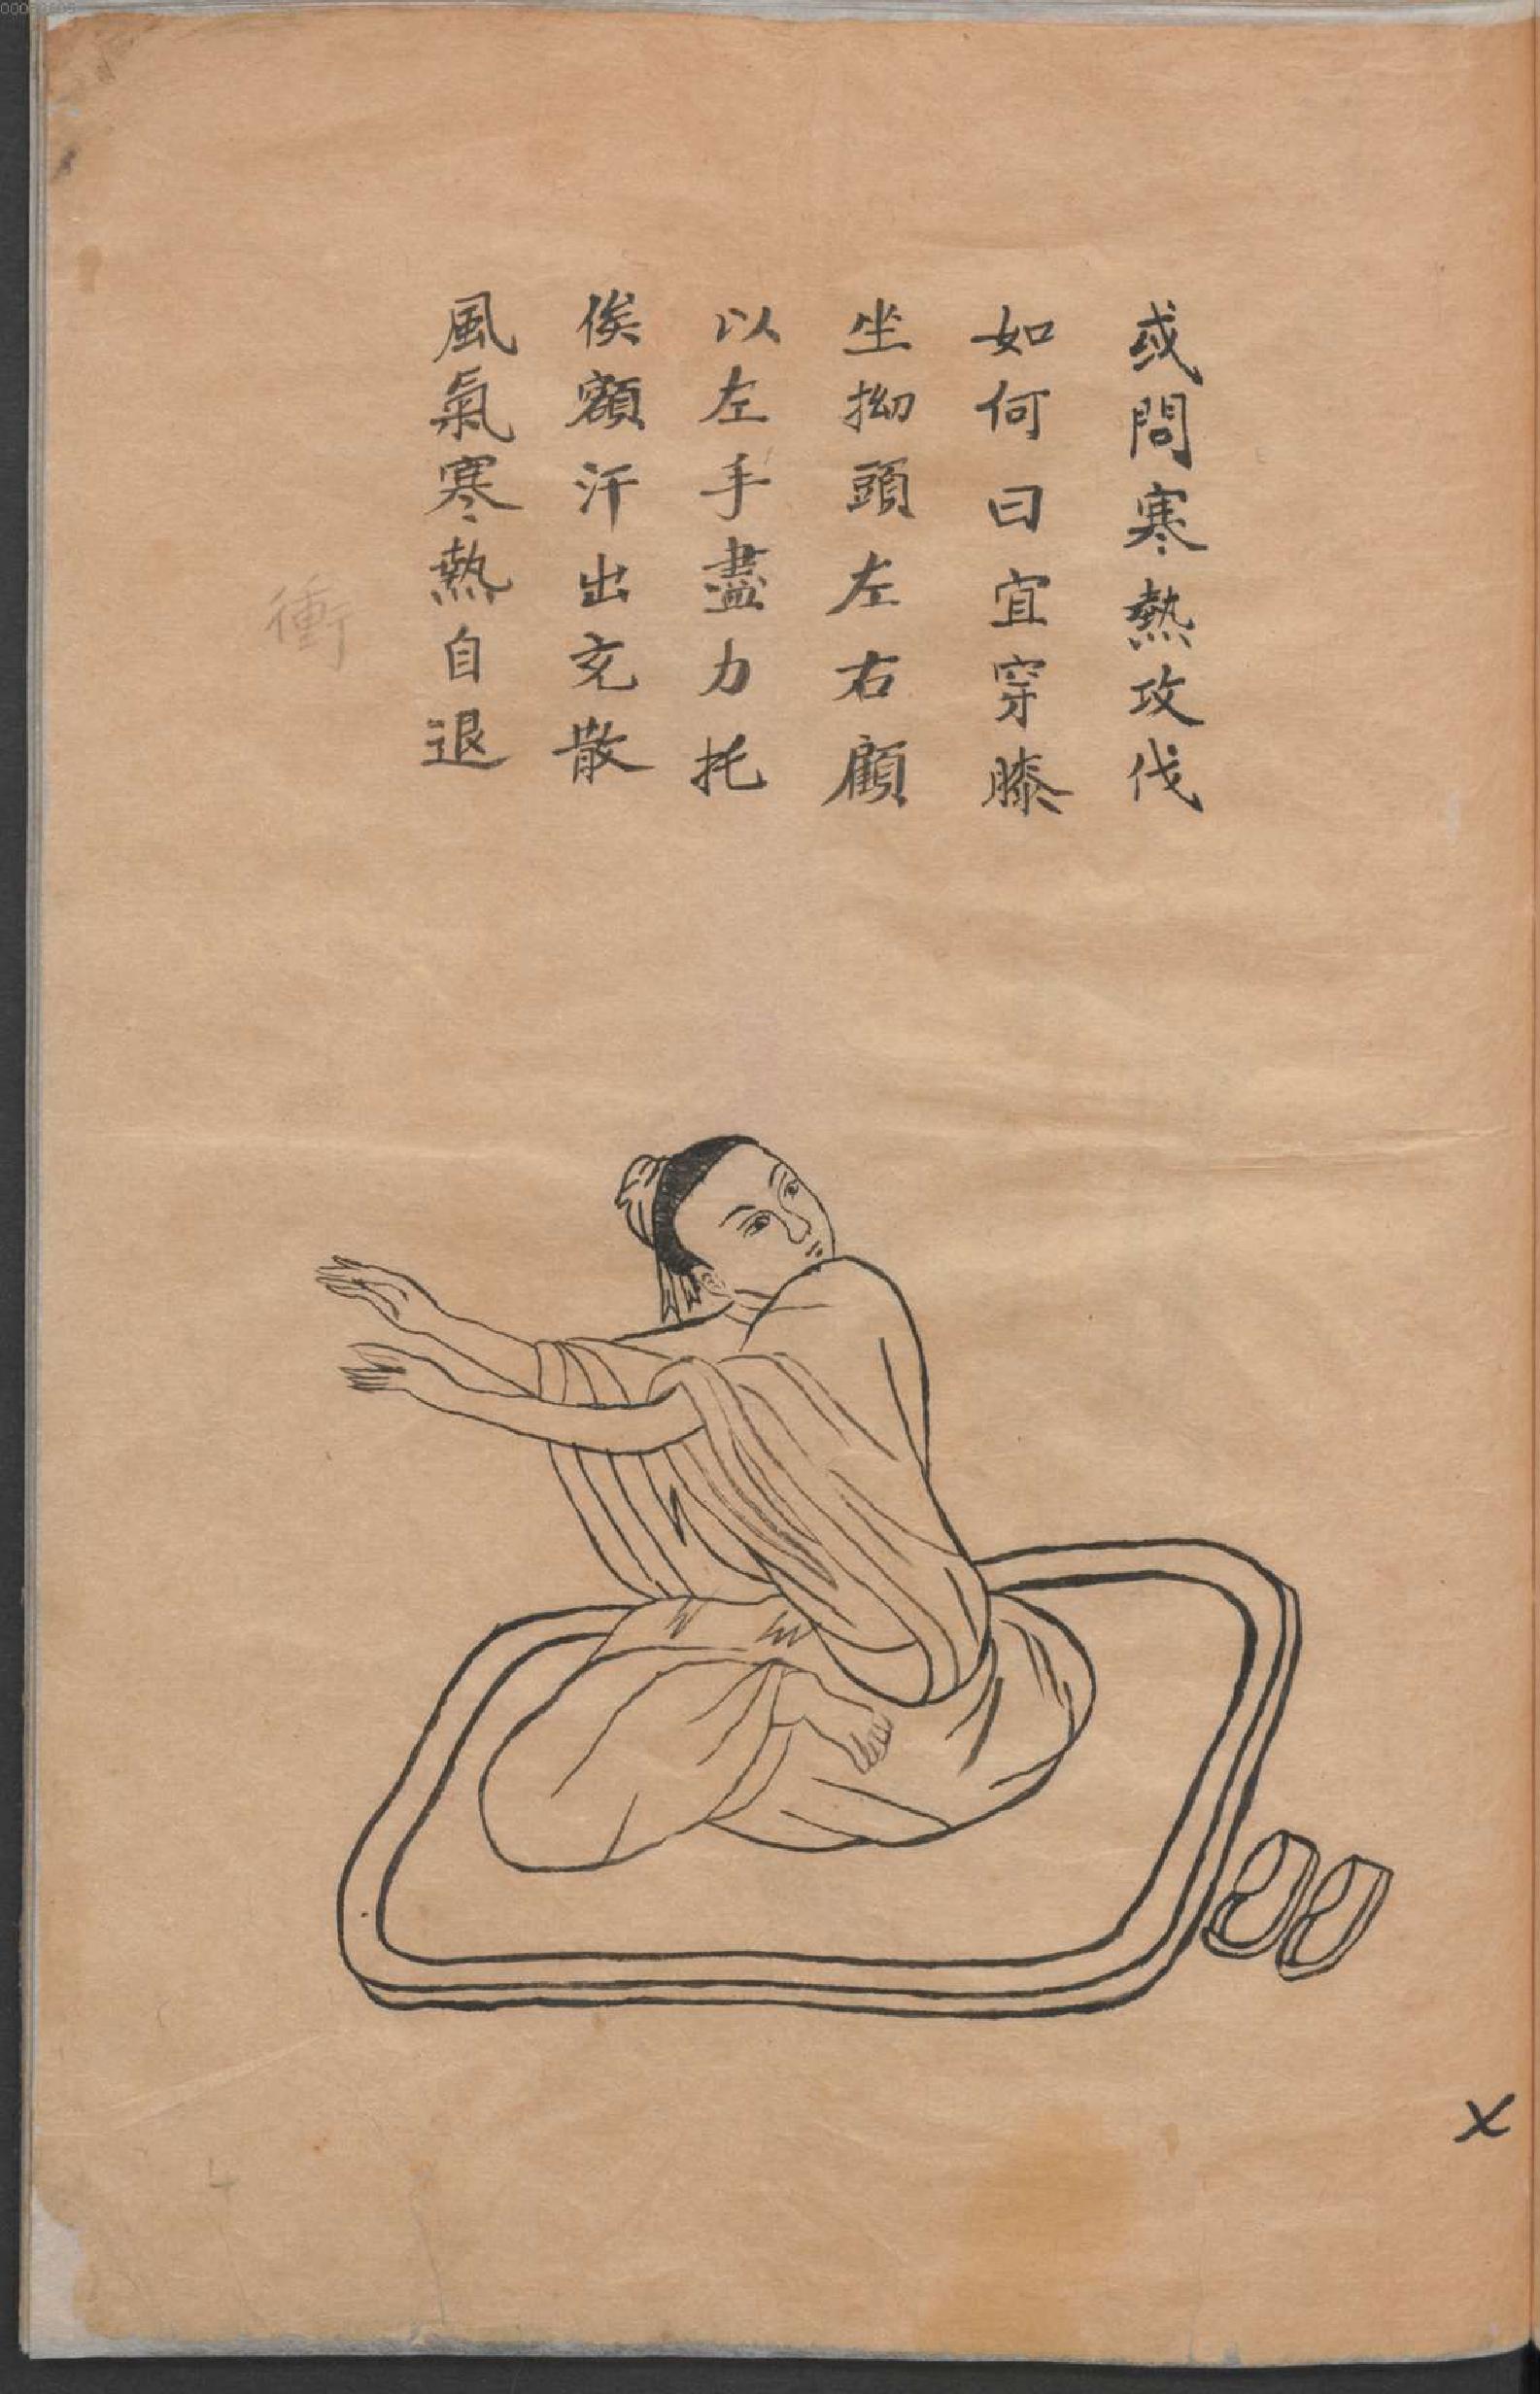 或問寒熱攻伐
如何曰宜穿膝
坐拗頭左右顧
以左手盡力托
俟額汗出充散
風氣寒熱自退
衝
X